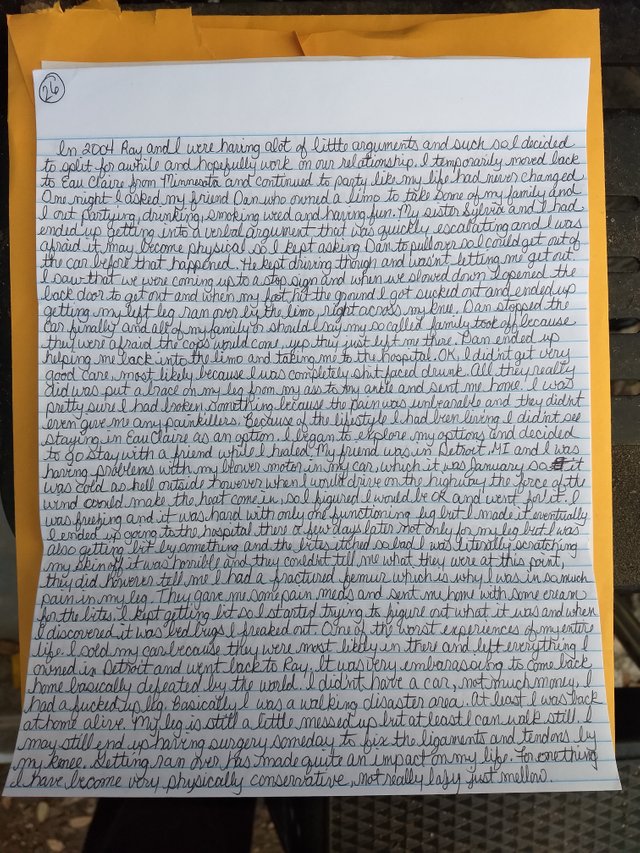 26
In 2004 Ray and I were having alot of little arguments and such so I decided
to split for awhile and hopefully work on our relationship. I temporarily moved back
to Eau Claire from Minnesota and continued to party like my life had never changed.
One night I asked my friend Dan who owned a limo to take some of my family and
I out partying, drinking, smoking weed and having fun. My sister Sylvia and I had
ended up getting into a verbal argument that was quickly escalating and I was
afraid it may become physical so I kept asking Dan to pull over so I could get out of
the car before that happened. He kept driving though and wasn't letting me get out.
I saw that we were coming up to a stop sign and when we slowed down I opened the
back door to get out and when my foot hit the ground I got sucked out and ended up
getting my left leg ran over by the limo, right across my knee. Dan stopped the
car finally and all of my family or should I say my so called family took off because
they were afraid the cops would come, yep they just left me there. Dan ended up
helping me back into the limo and taking me to the hospital. OK, I didn't get very
good care, most likely because I was completely shit faced drunk. All they really
did was put a brace on my leg from my ass to my ankle and sent me home. I was
pretty sure I had broken something because the pain was unbearable and they didn't
even give me any painkillers. Because of the lifestyle I had been living I didn't see
staying in Eau Claire as an option. I began to explore my options and decided
to go stay with a friend while I healed. My friend was in Detroit, MI and I was
having problems with my blower motor in my car, which it was January so it
was cold as hell outside however when I would drive on the highway the force of the
wind would make the heat come in, so I figured I would be OK and went for it. I
was freezing and it was hard with only one functioning leg but I made it eventually.
I ended up going to the hospital there a few days later not only for my leg but I was
also getting bit by something and the bites itched so bad I was literally scratching
my skin off it was horrible and they couldn't tell me what they were at this point,
they did however tell me I had a fractured femur which is why I was in so much
pain in my leg. They gave me some pain meds and sent me home with some cream
for the bites. I kept getting bit so I started trying to figure out what it was and when
I discovered it was bed bugs I freaked out. One of the worst experiences of my entire
life. I sold my car because they were most likely in there and left everything I
owned in Detroit and went back to Ray. It was very embarassing to come back
home basically defeated by the world. I didn't have a car, not much money, I
had a fucked up leg. Basically I was a walking disaster area. At least I was back
at home alive. My leg is still a little messed up but at least I can walk still. I
may still end up having surgery someday to fix the ligaments and tendons by
my knee. Getting ran over has made quite an impact on my life. For one thing
I have become very physically conservative, not really lazy just mellow.